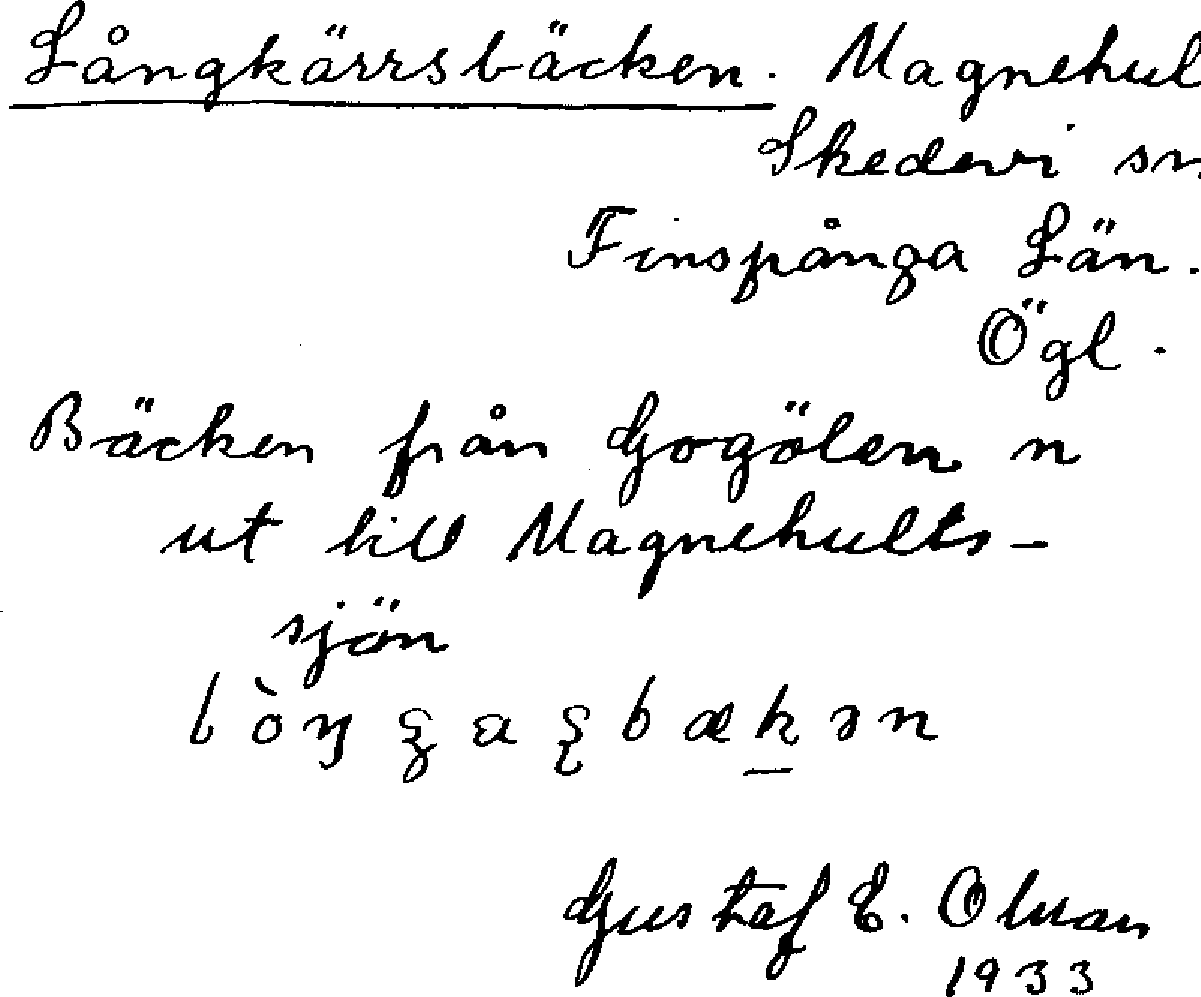 Långkärrsbäcken. Magnehul
Skedevi sn.
Finspånga Län.
Ögl.
Bäcken från Gogölen n
ut till Magnehults-
sjön
Gustaf E.
1933